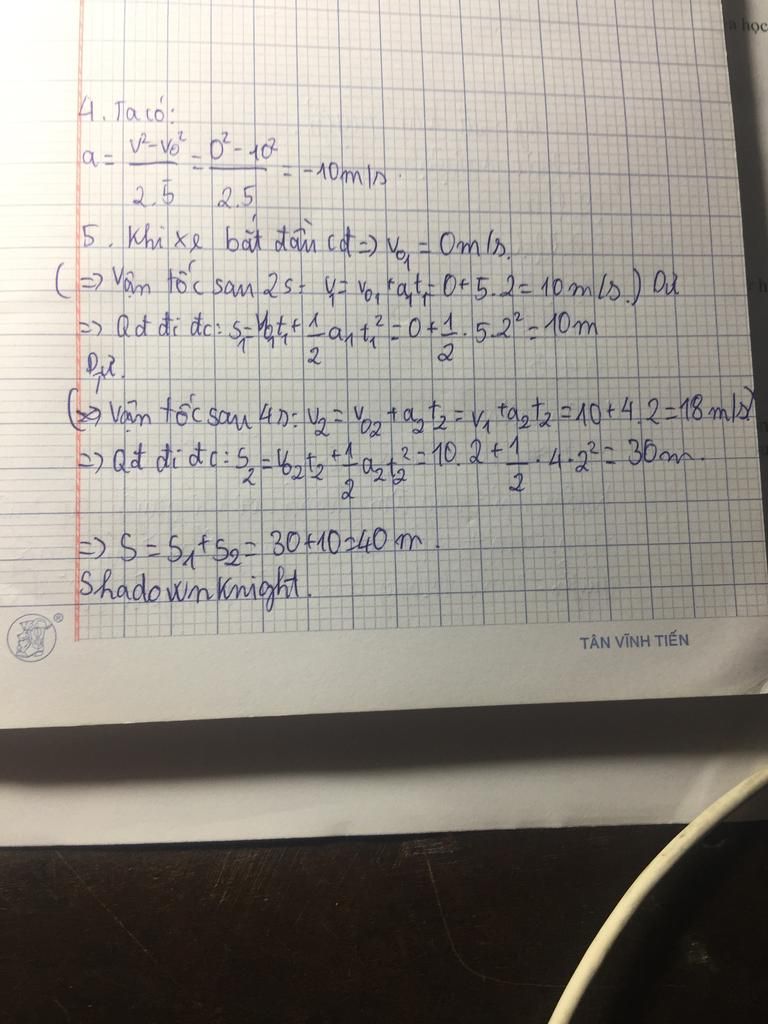 a học
4. Ta có:
a = \frac{v² - v₀²}{2.S} = \frac{0² - 10²}{2.5} = -10m/s.
5. Khi xe bắt đầu cđ => v₀₁ = 0m/s.
(=> Vận tốc sau 2s: v₁ = v₀₁ + a₁t₁ = 0 + 5.2 = 10 m/s.)
=> Qđ đi đc: s₁ = v₀₁t₁ + \frac{1}{2} a₁t₁² = 0 + \frac{1}{2} . 5.2² = 10m
(=> Vận tốc sau 4s: v₂ = v₀₂ + a₂t₂ = v₁ + a₂t₂ = 10 + 4.2 = 18 m/s)
=> Qđ đi đc: s₂ = v₀₂t₂ + \frac{1}{2} a₂t₂² = 10.2 + \frac{1}{2} . 4.2² = 30m.
=> S = S₁ + S₂ = 30 + 10 = 40 m.
ShadownKnight.
®
TÂN VĨNH TIẾN